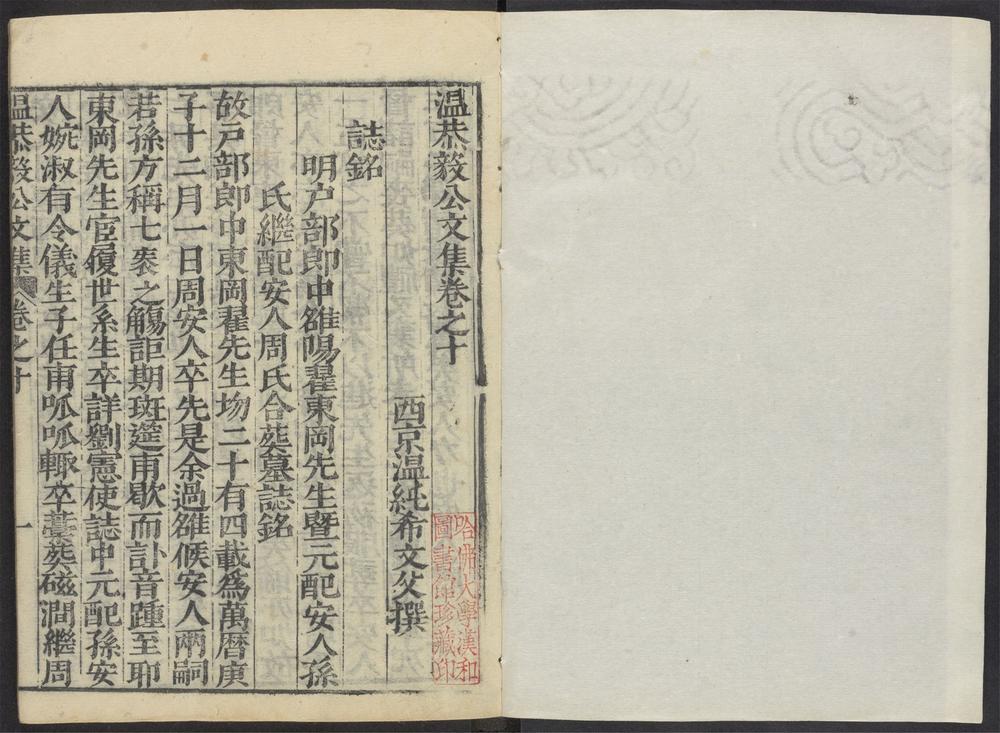 温恭毅公文集卷之十
西京温純希文父撰
誌銘
明戸部郎中雒陽翟東岡先生暨元配安人孫
氏繼配安人周氏合葬墓誌銘
故戸部郎中東岡翟先生歾二十有四載爲萬曆庚
子十二月一日周安人卒先是余過雒候安人兩嗣
若孫方稱七袠之觴詎期斑筵甫歇而訃音踵至耶
東岡先生宦履世系生卒詳劉憲使誌中元配孫安
人婉淑有令儀生子任甫呱呱輙卒藁葬磁澗繼周
温恭毅公文集 卷之十 一
哈佛大學漢和
圖書館珍藏印